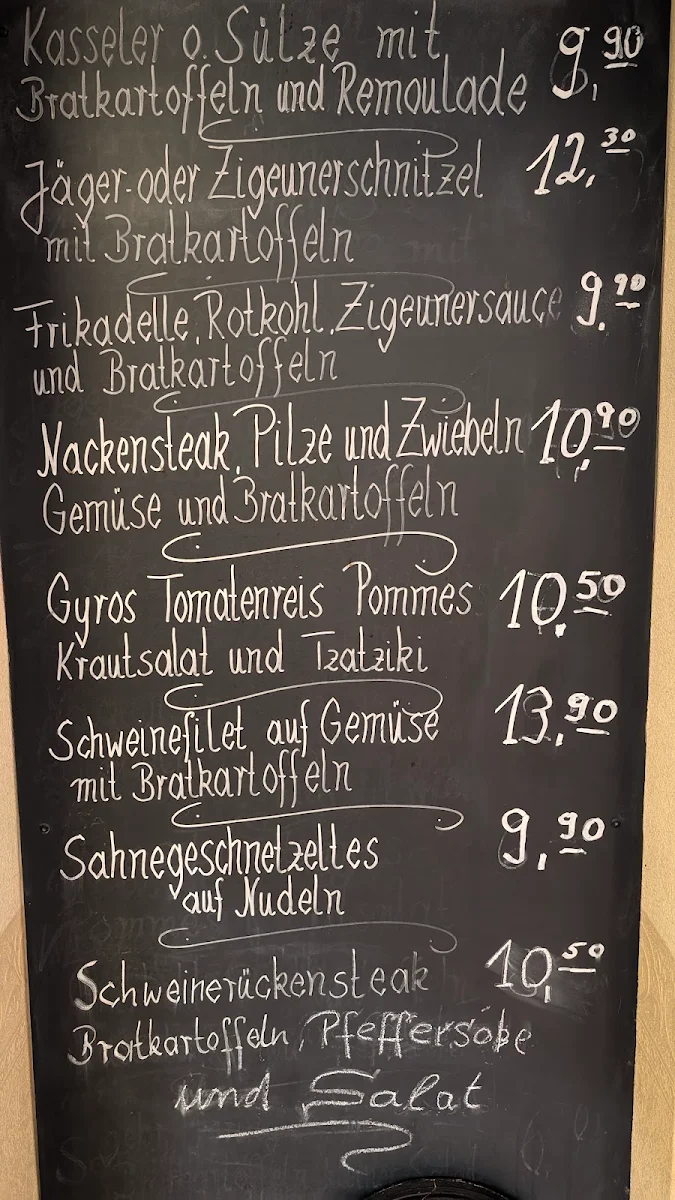 Kasseler o. Sülze mit 9,90
Bratkartoffeln und Remoulade
Jäger- oder Zigeunerschnitzel 12,30
mit Bratkartoffeln
Frikadelle, Rotkohl, Zigeunersauce 9,90
und Bratkartoffeln
Nackensteak, Pilze und Zwiebeln 10,90
Gemüse und Bratkartoffeln
Gyros Tomatenreis Pommes 10,50
Krautsalat und Tzatziki
Schweinefilet auf Gemüse 13,90
mit Bratkartoffeln
Sahnegeschnetzeltes 9,90
auf Nudeln
Schweinerückensteak 10,50
Bratkartoffeln, Pfeffersoße
und Salat